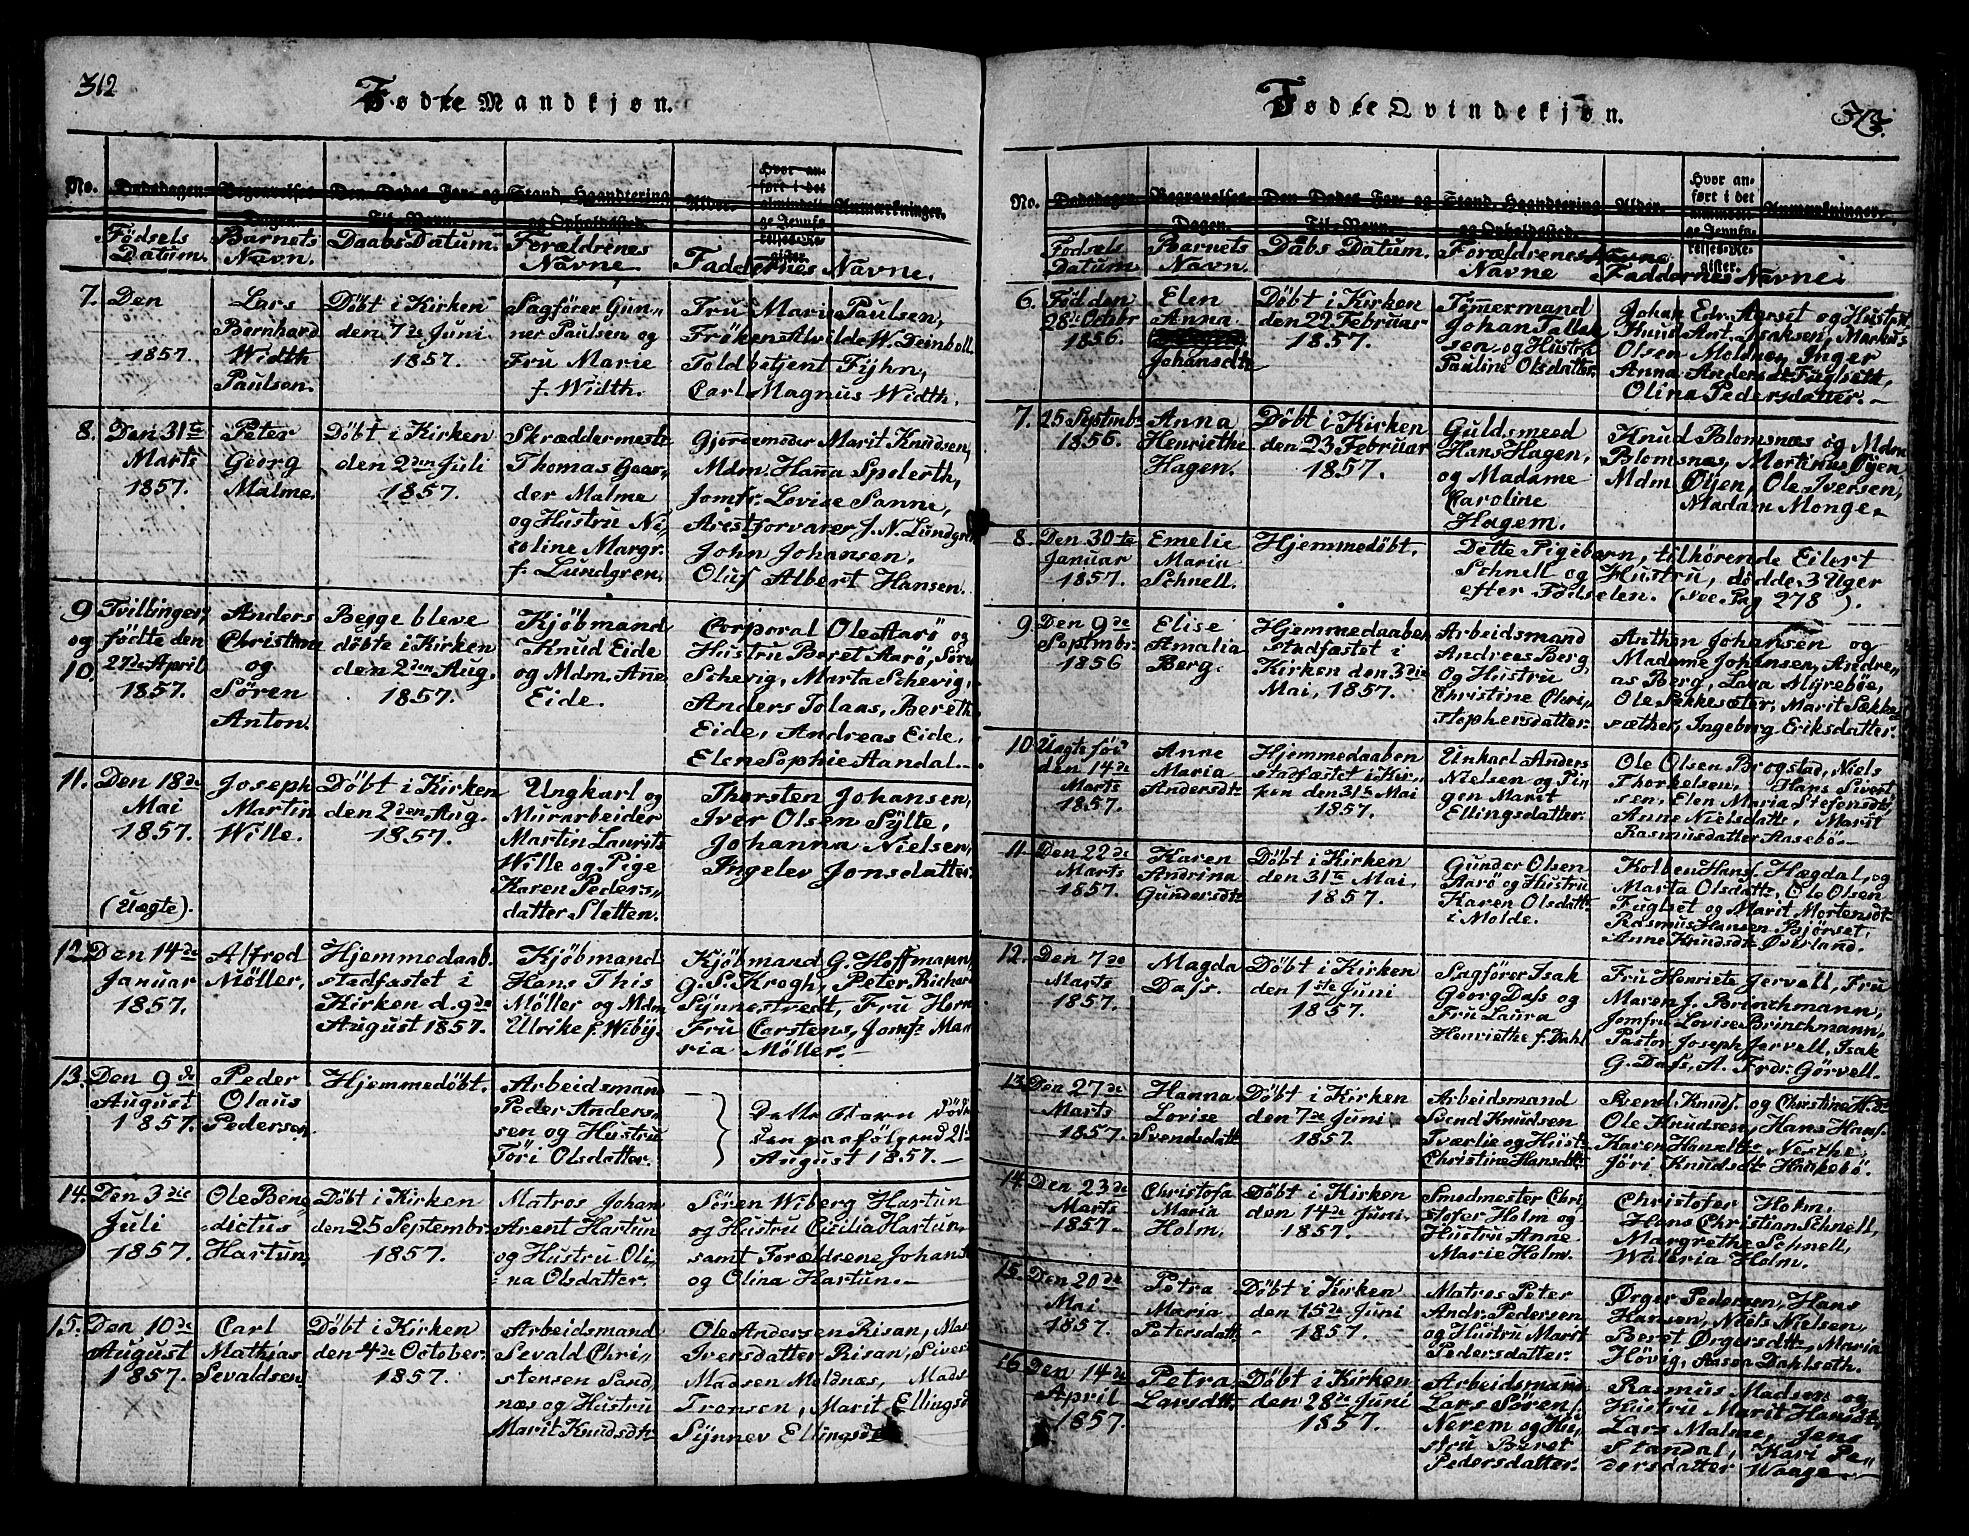 312
Fødte Mandkjøn.
No. Dødsdagen. Begravelses Dagen. Den Dødes For- og Til-Navn. Stand, Haandtering og Opholdssted. Alder. Hvor anført i det almindelige Jevnførelses-Register. Anmærkninger.
Fødsels Datum. Barnets Navn. Daabs Datum. Forældrenes Navne. Faddernes Navne.
7. Den
1857.
Lars
Bernhard
Width
Paulsen.
Döbt i Kirken
den 7de Juni
1857.
Sagförer Gun„
ner Paulsen og
Fru Marie
f. Width.
Fru Mari Paulsen,
Fröken Alvilde W. Deinboll.
Toldbetjent Fijhn,
Carl Magnus Width.
8. Den 31te
Marts
1857.
Peter
Georg
Malme.
Döbt i Kirken
den 2den Juli
1857.
Skræddermestr
Thomas Gaar„
der Malme
og Hustru Ni„
coline Margr.
f. Lundgren.
Gjordemoder Marit Knudsen,
Mdm. Hanna Spolerth,
Jomfr. Lovise Sanne,
Arestforvarer J. N. Lundgren
John Johansen,
Oluf Albert Hansen.
9
og
10.
Tvillinger,
födte den
27de April
1857.
Anders
Christian
og
Sören
Anton.
Begge bleve
döbte i Kirken
den 2den Aug.
1857.
Kjöbmand
Knud Eide
og Mdm. Ane
Eide.
Corporal Ole Aarö og
Hustru Beret Aarö, Sören
Schevig, Marta Schevig,
Anders Tolaas, Bereth
Eide, Andreas Eide,
Elen Sophie Aandal.
11. Den 18de
Mai
1857.
(Uægte).
Joseph
Martin
Wille.
Döbt i Kirken
den 2den Aug.
1857.
Ungkarl og
Murarbeider
Martin Laurits
Wille og Pige
Karen Peders„
datter Sletten.
Thorsten Johansen,
Iver Olsen Sylte,
Johanna Nielsen,
Ingelev Jonsdatter.
12. Den 14de
Januar
1857.
Alfred
Möller.
Hjemmedaab.
stadfæstet i
Kirken d. 9de
August 1857.
Kjöbmand
Hans This
Möller og Mdm
Ulrike f. Wibÿ.
Kjöbmand G. Hoffmann,
G. S. Krogh, Peter Richard
Synnestvedt, Fru Horn
Fru Carstens, Jomf. Ma„
ria Möller.
13. Den 9de
August
1857.
Peder
Olaus
Pedersen.
Hjemmedöbt.
Arbeidsmand
Peder Anders„
sen og Hustru
Töri Olsdatter.
Dette Barn döde
den paafölgend 21de
August 1857.
14. Den 3die
Juli
1857.
Ole Bene
dictus
Hartun.
Döbt i Kirken
den 25 Septembr.
1857.
Matros Johan
Arent Hartun
og Hustru Oli„
na Olsdatter.
Sören Wiberg Hartun
og Hustru Cecilia Hartun,
samt Forældrene Johan
og Olina Hartun.
15. Den 10de
August
1857.
Carl
Mathias
Sevaldsen.
Döbt i Kirken
den 4de October.
1857.
Arbeidsmand
Sevald Chri„
stensen Sand„
næs og Hustru
Marit Knudsdtr
Ole Andersen Risan,
Iversdatter Risan, Sivert
Madsen Moldnæs, Mads
Trensen, Marit Ellingsd
Synnev Ellingsdtr
313.
Fødte Qvindekjøn.
No. Dødsdagen. Begravelses Dagen. Den Dødes For- og Til-Navn. Stand, Haandtering og Opholdssted. Alder. Hvor anført i det almindelige Jevnførelses-Register. Anmærkninger.
Födsels Datum. Barnets Navn. Daabs Datum. Forældrenes Navne Faddernes Navne.
6. Fød den
28de Octobr
1856.
Elen
Anna
Johansdtr
Döbt i Kirken
den 22 Februar
1857.
Tömmermand
Johan Tollek
sen og Hustru
Pauline Olsdatter.
Johan Edv. Aarset og Hustru
Knud Ant. Isaksen, Markus
Olsen Moldnes, Inger
Anna Andersdtr Fuglset,
Olina Pedersdatter.
7. 25 Septembr
1856.
Anna
Henriethe
Hagen.
Döbt i Kirken
den 23 Februar
1857.
Guldsmeed
Hans Hagen,
og Madame
Caroline
Hagem.
Knud Blomsnæs og Mdm
Blomsnæs, Mortinus Öyen
Mdm Öyen, Ole Iversen,
Madam Monge.
8. Den 30te
Januar
1857.
Emelie
Maria
Schnell.
Hjemmedöbt.
Dette Pigebarn, tilhørende Eilert
Schnell og Hustru, dödde 3 Uger
efter Födselen. (See Pag 278).
9. Den 9de
Septembr.
1856
Elise
Amalia
Berg.
Hjemmedaaben
stadfæstet i
Kirken den 3die
Mai, 1857.
Arbeidsmand
Andreas Berg,
og Hustru
Christine Chri„
stophersdatter.
Anthon Johansen og
Madame Johansen, Andre„
as Berg, Lava Myreböe,
Ole Sekkesæter, Marit Sække
sæther, Ingeborg Eriksdatter.
10. Uægte föd
den 14de
Marts
1857.
Anne
Maria
Andersdtr
Hjemmedaaben
stadfæstet i Kir„
ken den 31te Mai
1857.
Unkarl Anders
Nielsen og Pi„
gen Marit
Ellingsdatter.
Ole Olsen Brogstad, Niels
Thorkelsen, Hans Sivert
sen, Elen Maria Stefensdtr
Anne Nielsdattr, Marit
Rasmusdatter Aasebö.
11. Den 22de
Marts
1857.
Karen
Andrina
Gundersdtr
Döbt i Kirken
den 31te Mai,
1857.
Gunder Olsen
Aarö og Hustru
Karen Olsdattr
i Molde.
Kolben Hans. Hægdal, og
Marta Olsdattr, Ole Olsen
Fuglset og Marit Mortensdtr
Rasmus Hansen Bjørset,
Anne Knudsdtr Överland.
12. Den 7de
Marts
1857.
Magda
Dass.
Döbt i Kirken
den 1ste Juni
1857.
Sagförer Isak
Georg Dass og
Fru Laura
Henriethe f. Dahl
Fru Henriete Jervell, Fru
Maren J. Brinchmann,
Jomfru Lovise Brinchmann,
Pastor Joseph Jervell, Isak
G. Dass, A. Frdr. Görvell.
13. Den 27de
Marts
1857.
Hanna
Lovise
Svendsdattr
Döbt i Kirken
den 7de Juni
1857.
Arbeidsmand
Svend Knudsen
Sværlie og Hustr
Christine Hansdtr
Svend Knuds. og Christine H.dtr
Ole Knudsen, Hans Hans.
Karen Hansdtr Nerthe,
Jöri Knudsdtr Haukebö.
14. Den 23de
Marts
1857.
Christofa
Maria
Holm.
Döbt i Kirken
den 14de Juni.
1857.
Smedmester Chri„
stofer Holm og
Hustru Anne
Marie Holm.
Christofer Holm,
Hans Christian Schnell,
Margrethe Schnell,
Waleria Holm.
15. Den 20de
Mai
1857.
Petra
Maria
Petersdattr
Döbt i Kirken
den 15de Juni
1857.
Matros Peter
Andr. Pedersen
og Hustru Marit
Pedersdatter.
Örger Pedersen, Hans
Hansen, Niels Nielsen,
Beret Örgersdtr, Maria
Hövig, Aasaa Dahlseth.
16. Den 14de
April
1857.
Petra
Larsdtr.
Döbt i Kirken
den 28de Juni
1857.
Arbeidsmand
Lars Sörens.
Nerem og Hu„
stru Beret
Pedersdatter.
Rasmus Madsen og
Hustru Marit Hansdtr,
Lars Malme, Jens
Standal, Kari Pe„
dersdatter Waage